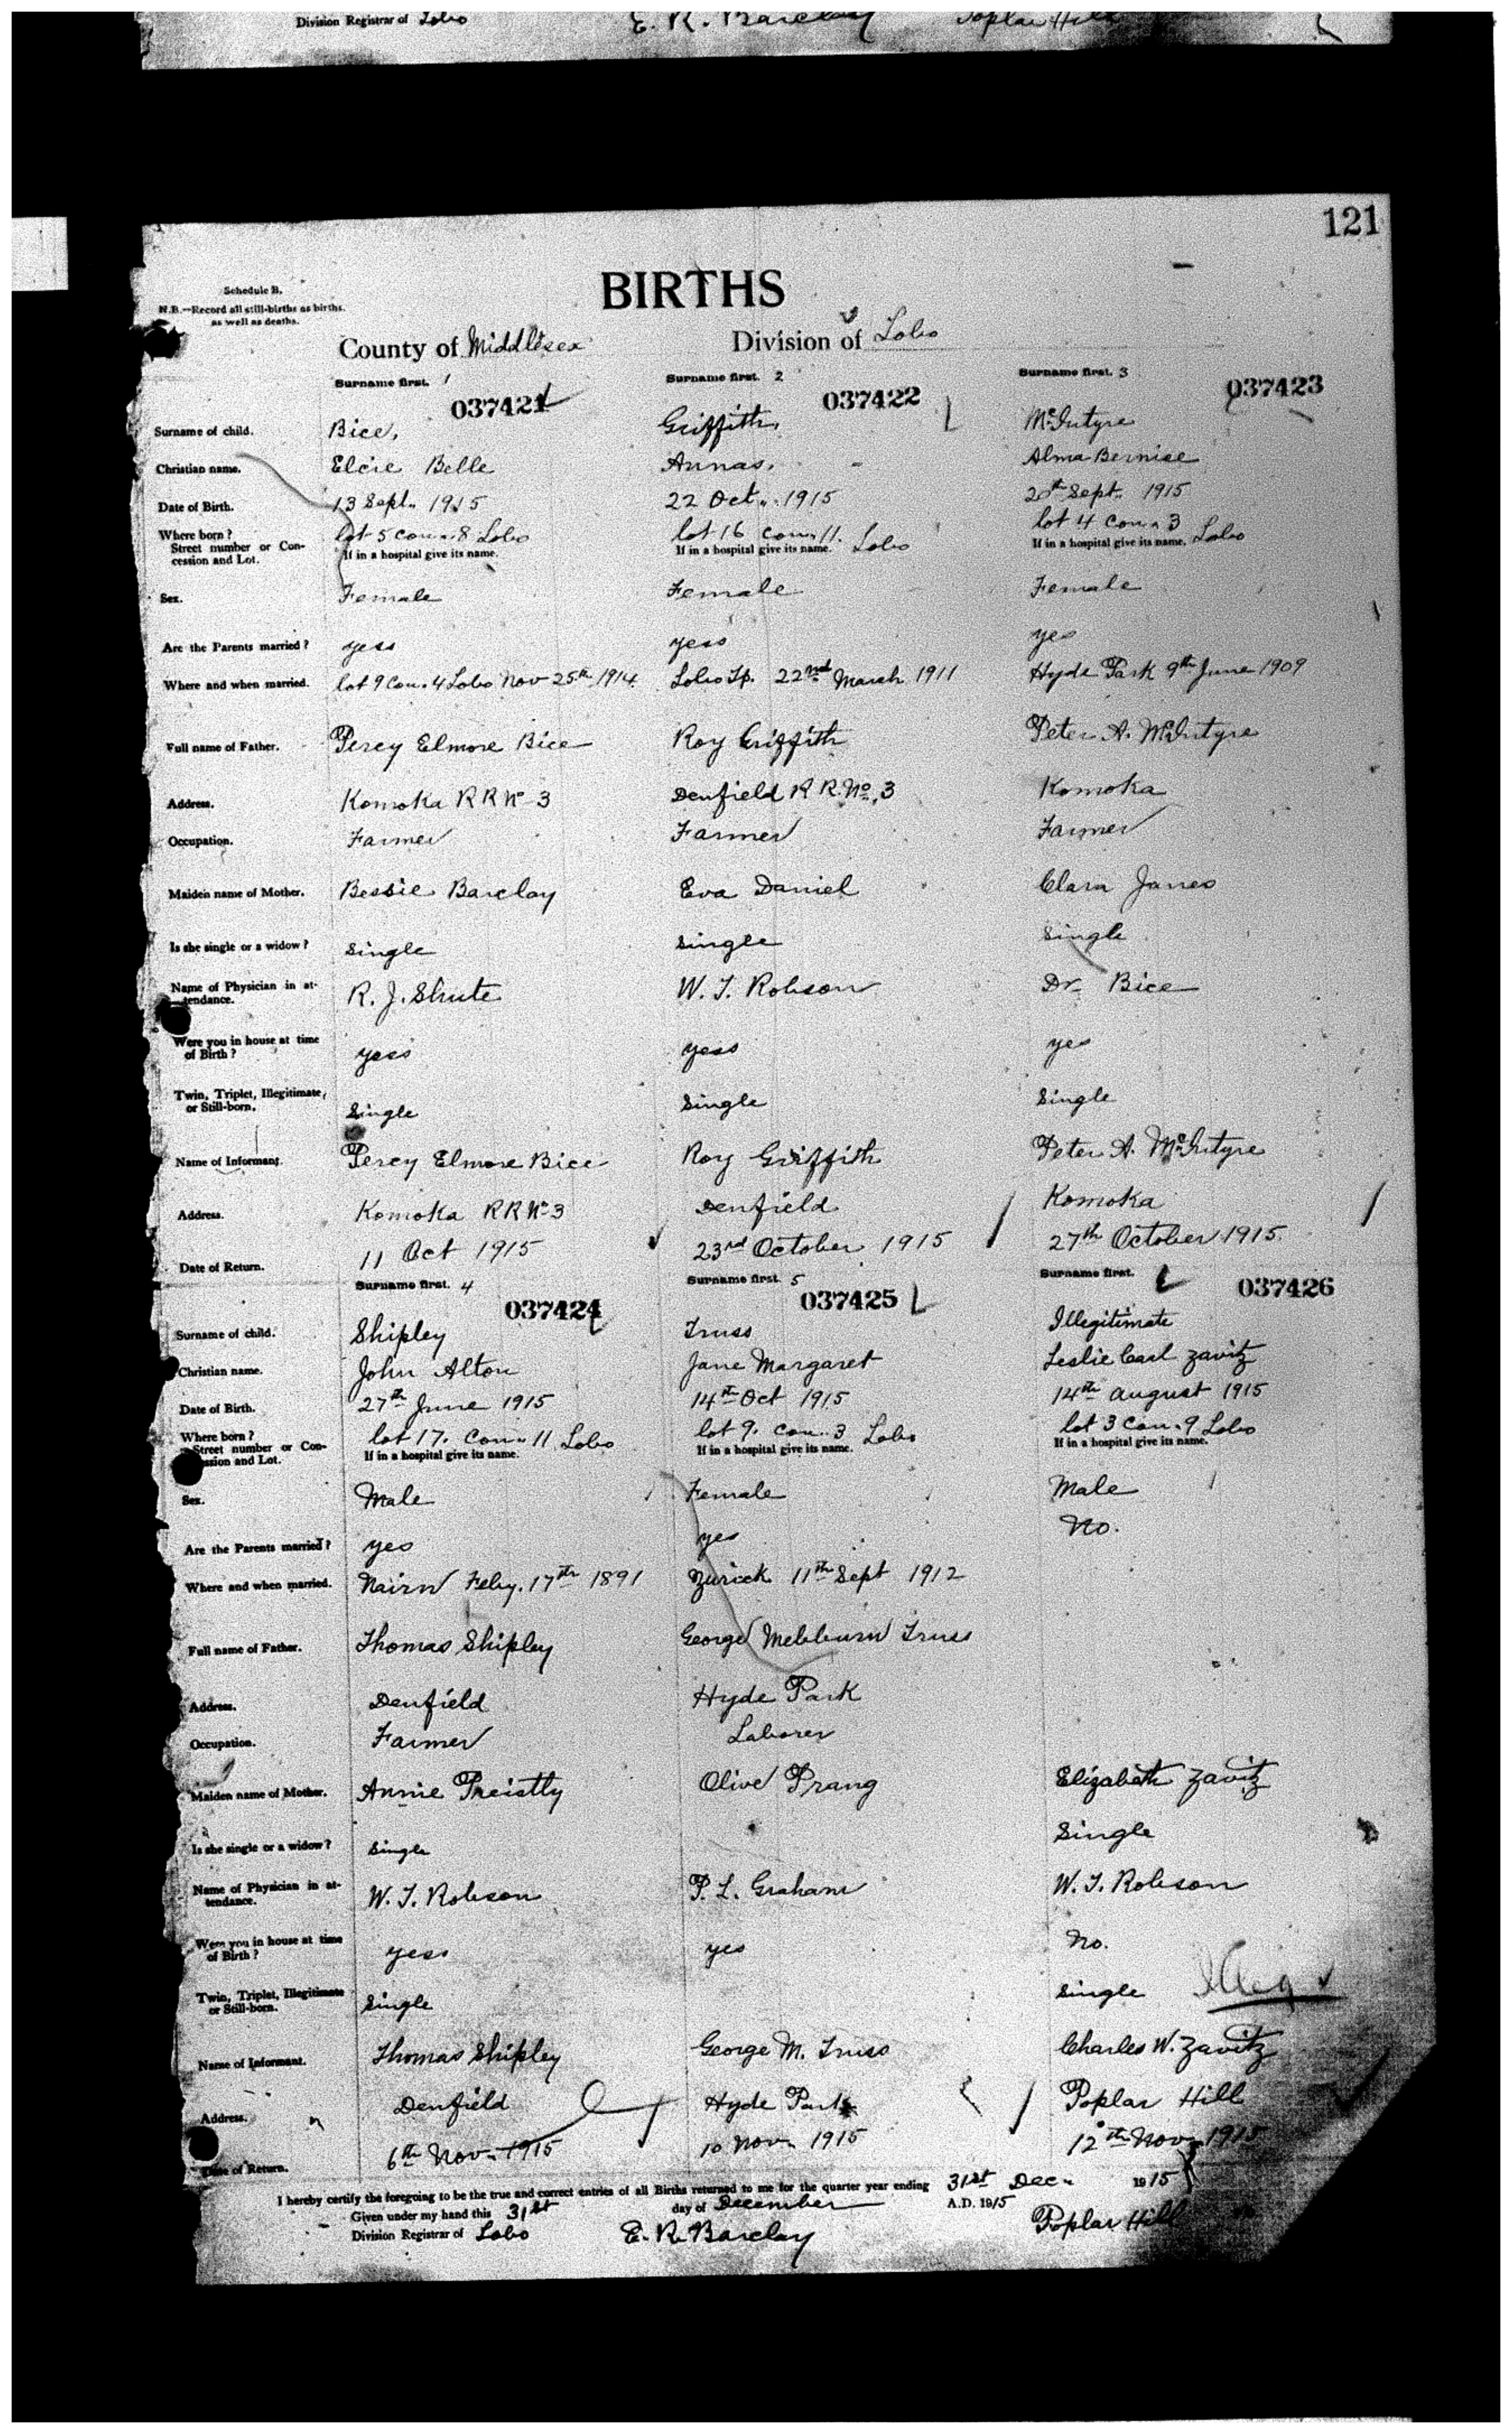 Division Registrar of Lobo E. R. Barclay Poplar Hill
121
Schedule B.
N.B.—Record all still-births as births.
as well as deaths.
BIRTHS
County of Middlesex Division of Lobo
Surname first. 1 Surname first. 2 Surname first. 3
037421 037422 037423
Surname of child. Bice, Griffith, McIntyre
Christian name. Elcie Belle Annas, Alma Bernise
Date of Birth. 13 Sept. 1915 22 Oct. 1915 20th Sept. 1915
Where born? lot 5 con. 8 Lobo lot 16 con. 11. Lobo lot 4 con. 3 Lobo
Street number or Con-
cession and Lot. If in a hospital give its name. If in a hospital give its name. If in a hospital give its name.
Sex. Female Female Female
Are the Parents married? yess yess yes
Where and when married. lot 9 Con. 4 Lobo Nov 25th 1914. Lobo Tp. 22nd March 1911 Hyde Park 9th June 1909
Full name of Father. Percy Elmore Bice Roy Griffith Peter A. McIntyre
Address. Komoka RR No 3 Denfield R R. No. 3 Komoka
Occupation. Farmer Farmer Farmer
Maiden name of Mother. Bessie Barclay Eva Daniel Clara Janes
Is she single or a widow? single single single
Name of Physician in at-
tendance. R. J. Shute W. T. Robson Dr Bice
Were you in house at time
of Birth? yess yess yes
Twin, Triplet, Illegitimate,
or Still-born. single single single
Name of Informant. Percy Elmore Bice Roy Griffith Peter A. McIntyre
Address. Komoka RR No 3 Denfield Komoka
Date of Return. 11 Oct 1915 23rd October 1915 27th October 1915.
Surname first. 4 Surname first. 5 Surname first.
037424 037425 037426
Surname of child. Shipley Truss Illegitimate
Christian name. John Alton Jane Margaret Leslie Carl Zavitz
Date of Birth. 27th June 1915 14th Oct 1915 14th august 1915
Where born? lot 17. Con. 11 Lobo lot 9. con. 3 Lobo lot 3 Con. 9 Lobo
Street number or Con-
ession and Lot. If in a hospital give its name. If in a hospital give its name. If in a hospital give its name.
Sex. Male Female Male
Are the Parents married? yes yes No.
Where and when married. Nairn Feby. 17th 1891 Zurick 11th Sept 1912
Full name of Father. Thomas Shipley George Melburn Truss
Address. Denfield Hyde Park
Occupation. Farmer Laborer
Maiden name of Mother. Annie Preistly Olive Prang Elizabeth Zavitz
Is she single or a widow? single Single
Name of Physician in at-
tendance. W. T. Robson P. L. Graham W. T. Robson
Were you in house at time
of Birth? yess yes No.
Twin, Triplet, Illegitimate
or Still-born. single single Illeg
Name of Informant. Thomas Shipley George M. Truss Charles W. Zavitz
Address. Denfield Hyde Park Poplar Hill
Date of Return. 6th Nov. 1915 10 Nov. 1915 12th Nov. 1915
I hereby certify the foregoing to be the true and correct entries of all Births returned to me for the quarter year ending 31st Dec. 1915
Given under my hand this 31st day of December A.D. 1915
Division Registrar of Lobo E. R. Barclay Poplar Hill